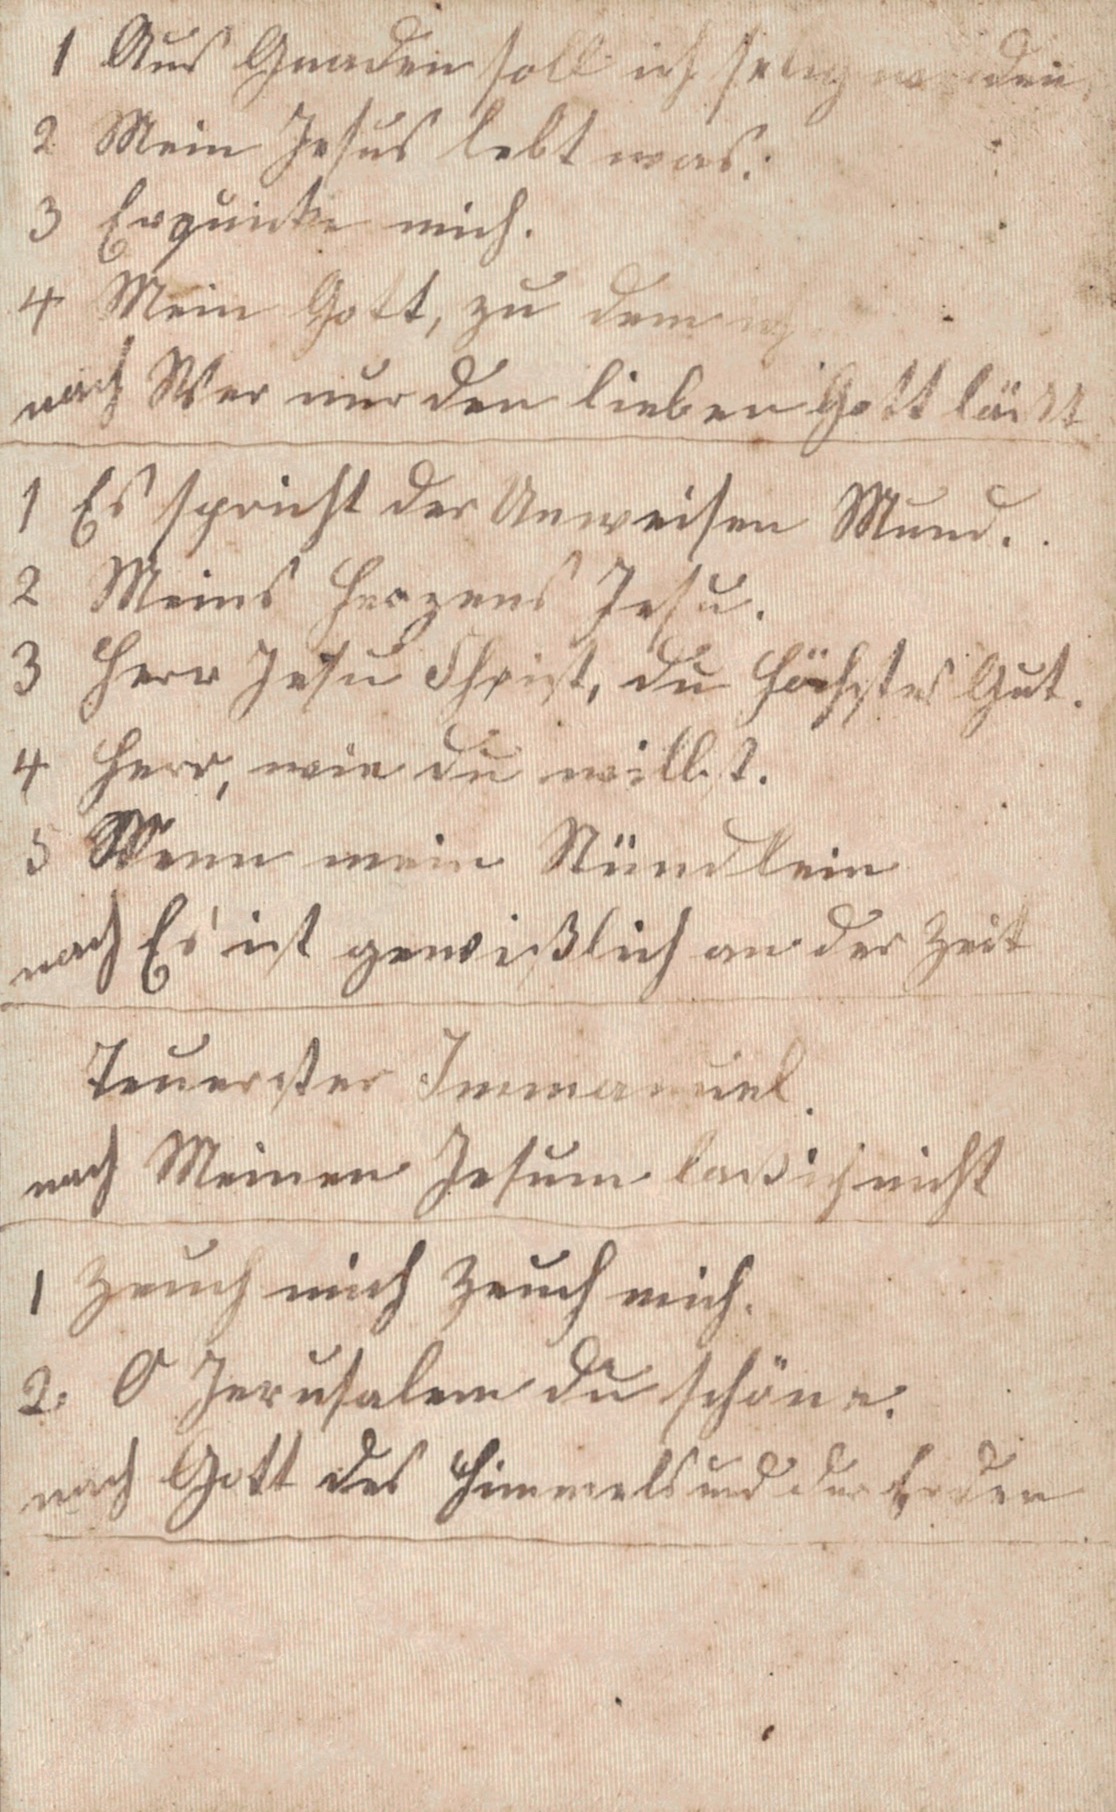 1 Aus Gnaden soll ich selig werden
2 Mein Jesus lebt was.
3 Erquicke mich.
4 Mein Gott, zu dem
nach Wer nur den lieben Gott läßt
1 Es spricht der Unweisen Mund.
2 Meins Herzens Jesu.
3 Herr Jesu Christ, du höchstes Gut.
4 Herr, wie du willst.
5 Wenn mein Stündlein
nach Es ist gewißlich an der Zeit
Teuerster Immanuel.
nach Meinen Jesum laß ich nicht
1 Zeuch mich Zeuch mich.
2. O Jerusalem du schöne.
nach Gott des Himmels und der Erden